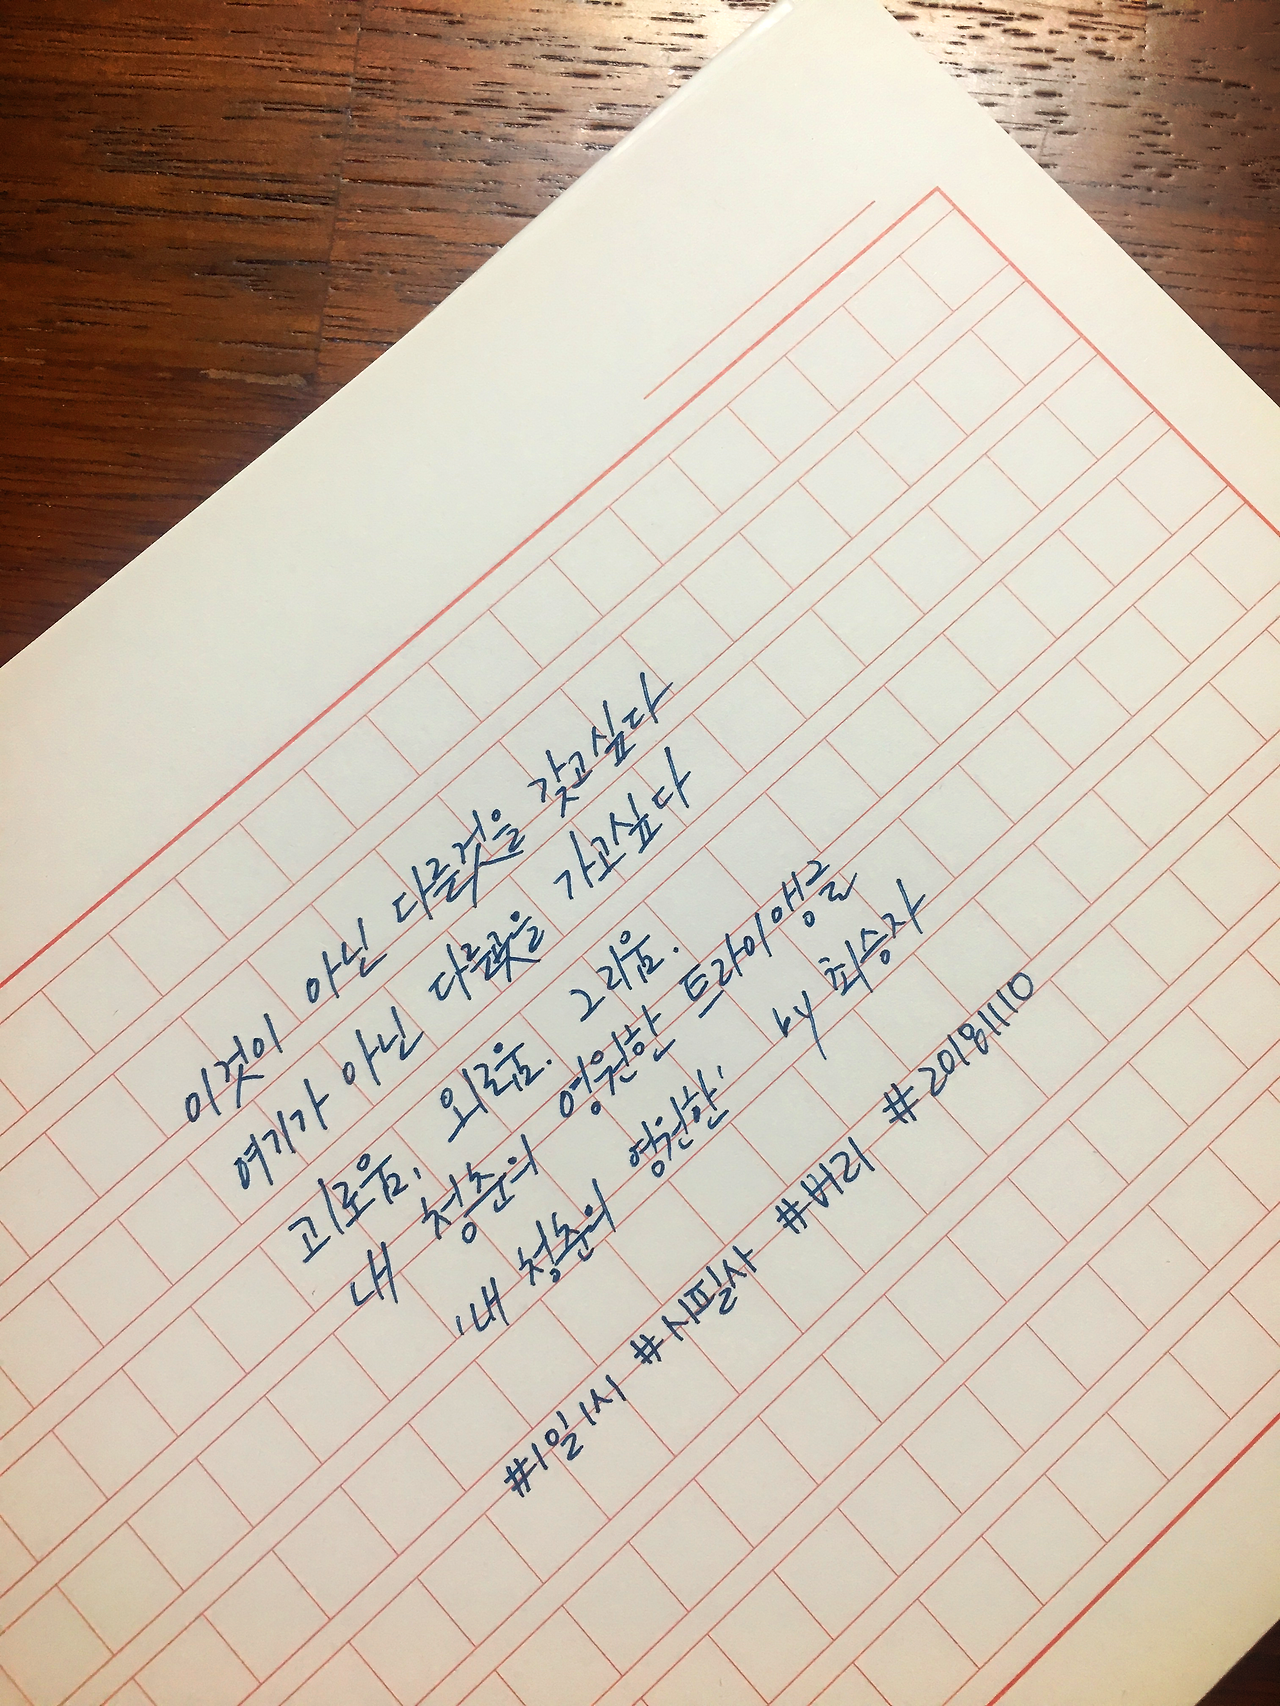 이것이 아닌 다른것을 갖고싶다
여기가 아닌 다른곳을 가고싶다
괴로움, 외로움. 그리움.
내 청춘의 영원한 트라이앵글
'내 청춘의 영원한' by 최승자
#1일1시 #시필사 #버리 #20181110